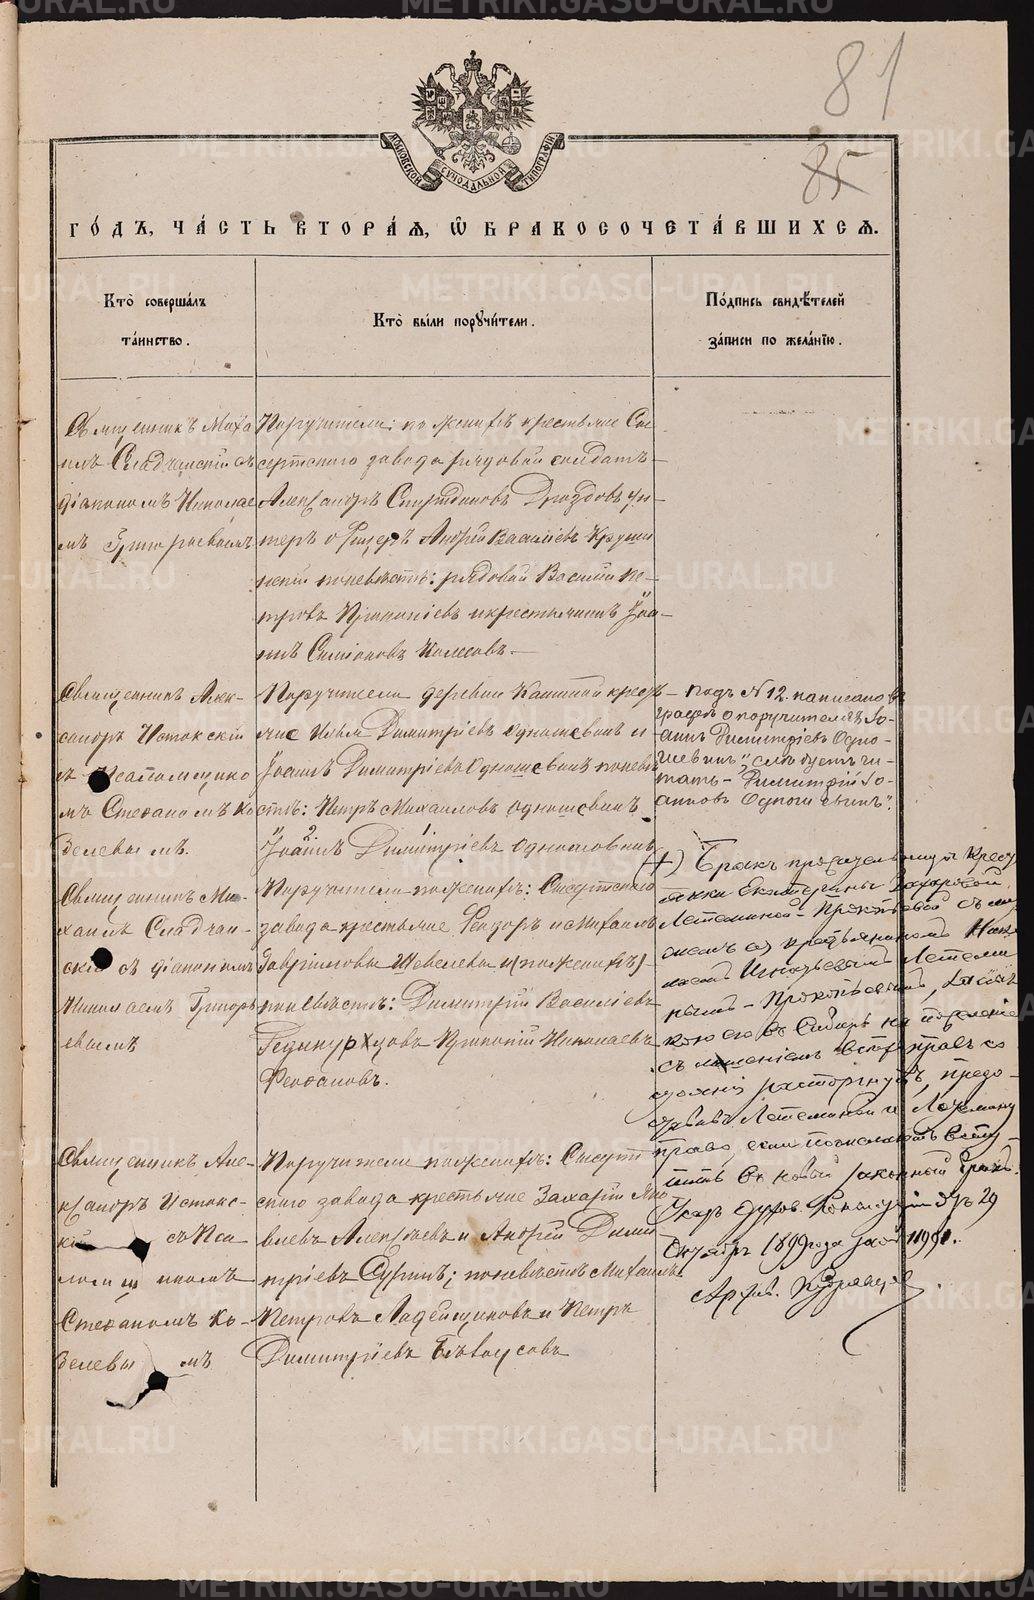 81
85
МОСКОВСКОЙ СУНОДАЛЬНОЙ ТИПОГРАФІИ
ГО́ДЪ, ЧА́СТЬ ВТОРА́Ѧ, Ѽ БРАКОСОЧЕТА́ВШИХСѦ.
Кто̀ соверша́лъ
та́инство.
Кто̀ бы́ли порꙋчи́тели.
По́дпись свидѣ́телей
за́писи по жела́нїю.
Священникъ Миха
илъ Сладчанскій съ
діакономъ Николае
мъ Григорьевымъ
Поручители: по женихѣ крестьяне Сы
сертскаго завода рядовой солдатъ
Александръ Спиридоновъ Дроздовъ ун
теръ Андрей Василіевъ
по невѣстѣ: рядовой Василій Пе-
тровъ и крестьянинъ Іоа-
ннъ Симіоновъ Колесовъ.
Священникъ Алек-
сандръ Истокскій
съ Псаломщико
мъ Стефаномъ Ко
зелевымъ.
Поручители деревни Каменки кресть-
яне Илья Димитріевъ Одношевинъ и
Іоаннъ Димитріевъ Одношевинъ по невѣ
стѣ: Петръ Михаиловъ Одношевинъ
2. 1
Іоаннъ Димитріевъ Одношевинъ
подъ N 12. написано въ
графѣ о поручителяхъ Іо-
аннъ Димитріевъ Одно-
шевинъ", слѣдуетъ чи-
тать - Димитрій Іо-
анновъ Одношевинъ".
Священникъ Ми-
хаилъ Сладчан-
скій съ діакономъ
Николаемъ Григорь
евымъ
Поручители по женихѣ: Сысертскаго
завода крестьяне Ѳеодоръ и Михаилъ
Гавріиловы Шевелевы (по женихѣ)
по невѣстѣ: Димитрій Василіевъ
Николаевъ
Феофановъ.
(+) Бракъ крест
янки Екатерины Захаровой
Летеминой - Прокопьевой съ му
жемъ ея крестьяниномъ
Игнатьевымъ Летеми
нымъ - Прокопьевымъ,
въ Сибирь на поселеніе
съ лишеніемъ всѣхъ правъ со
стоянія расторгнутъ, предо-
ставивъ Летеминой
право, если пожелаетъ всту-
пить въ новый законный бракъ.
Указъ Духов. Консисторіи отъ 29
Октября 1899 года за №
Священникъ Але-
ксандръ Истокс-
кій съ Пса
ломщикомъ
Стефаномъ Ко-
зелевымъ
Поручители по женихѣ: Сысерт
скаго завода крестьяне Захарій Яко
влевъ Алексѣевъ и Андрей Дими
тріевъ Суринъ; по невѣстѣ Михаилъ
Петровъ Ладейщиковъ и Петръ
Димитріевъ Бѣлоусовъ
METRIKI.GASO-URAL.RU